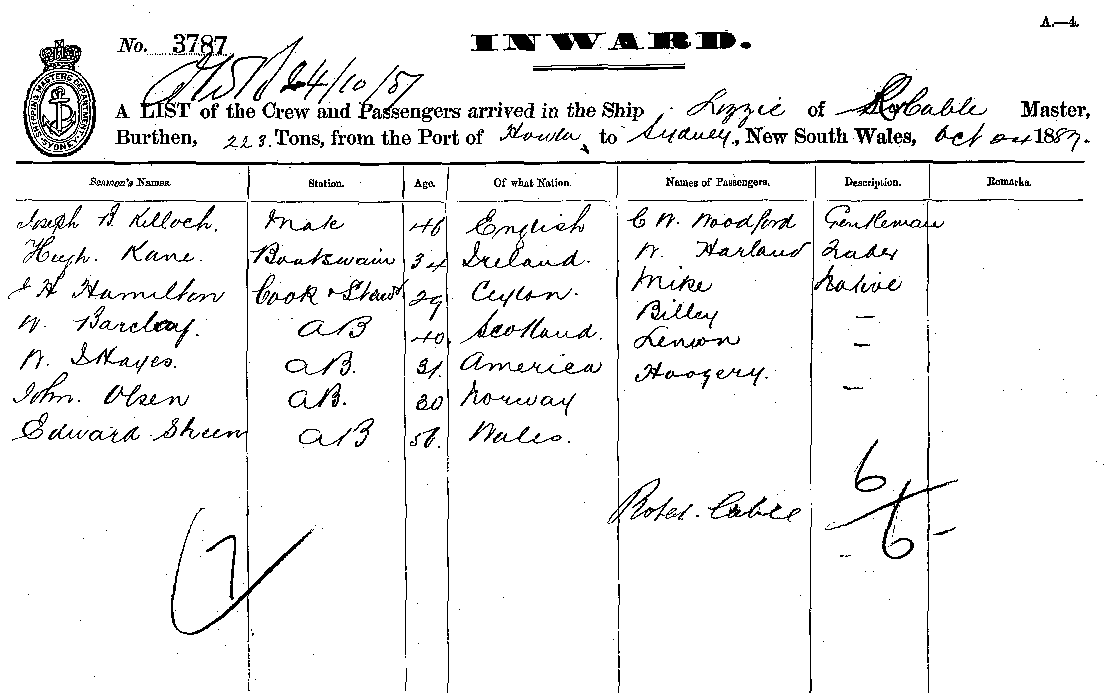 A.—4.
No. 3787
INWARD.
24/10/87
A LIST of the Crew and Passengers arrived in the Ship Lizzie of R Cable Master,
Burthen, 223 Tons, from the Port of to Sydney, New South Wales, Oct 24 1887.
SHIPPING MASTERS DEPARTMENT SYDNEY
Seamen's Names. Station. Age. Of what Nation. Names of Passengers. Description. Remarks.
Joseph B. Killoch. Mate 46 English C W Woodford Gentleman
Hugh. Kane. Boatswain 34 Ireland. W Harland Trader
J H Hamilton Cook & Stewd 29 Ceylon. Mike Native
W. Barclay. AB 40 Scotland. Billey —
W. Hayes. AB. 31. America Lemon —
John. Olsen AB. 30 Norway Hoogery. —
Edward Sheen AB 56. Wales.
6
Robt. Cable
6
7